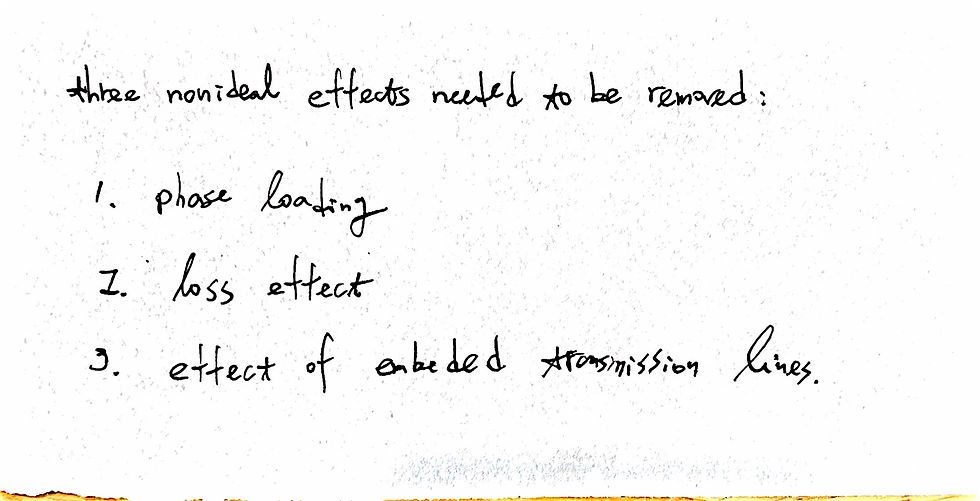 three nonideal effects needed to be removed:
1. phase loading
2. loss effect
3. effect of embeded transmission lines.